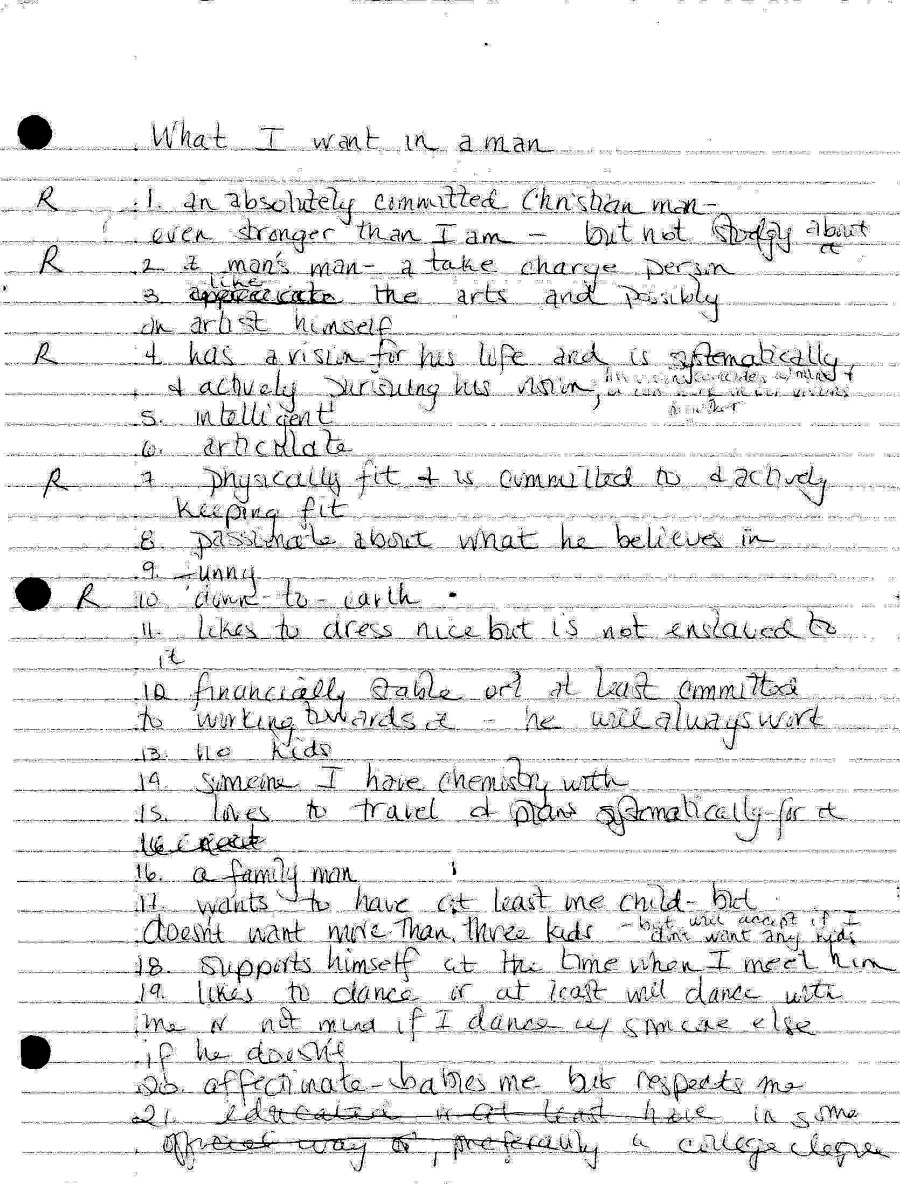 What I want in a man
R 1. an absolutely committed Christian man -
even stronger than I am - but not stodgy about it
R 2. a man's man - a take charge person
3. like the arts and possibly
an artist himself
R 4. has a vision for his life and is systematically
& actively pursuing his vision, his vision coincides w/ mine &
or can work in our visions
together
5. intelligent
6. articulate
R 7. physically fit & is committed to & actively
keeping fit
8. passionate about what he believes in
9. funny
R 10. down-to-earth
11. likes to dress nice but is not enslaved to
it
12 financially stable or at least committed
to working towards it - he will always work
13. no kids
14. someone I have chemistry with
15. loves to travel & plans systematically for it
16.
16. a family man
17. wants to have at least one child - but
doesn't want more than three kids - but will accept if I
don't want any kids
18. supports himself at the time when I meet him
19. likes to dance or at least will dance with
me or not mind if I dance w/ someone else
if he doesn't
20. affectionate - babies me but respects me
21. educated or at least have in some
way or, preferably a college degree